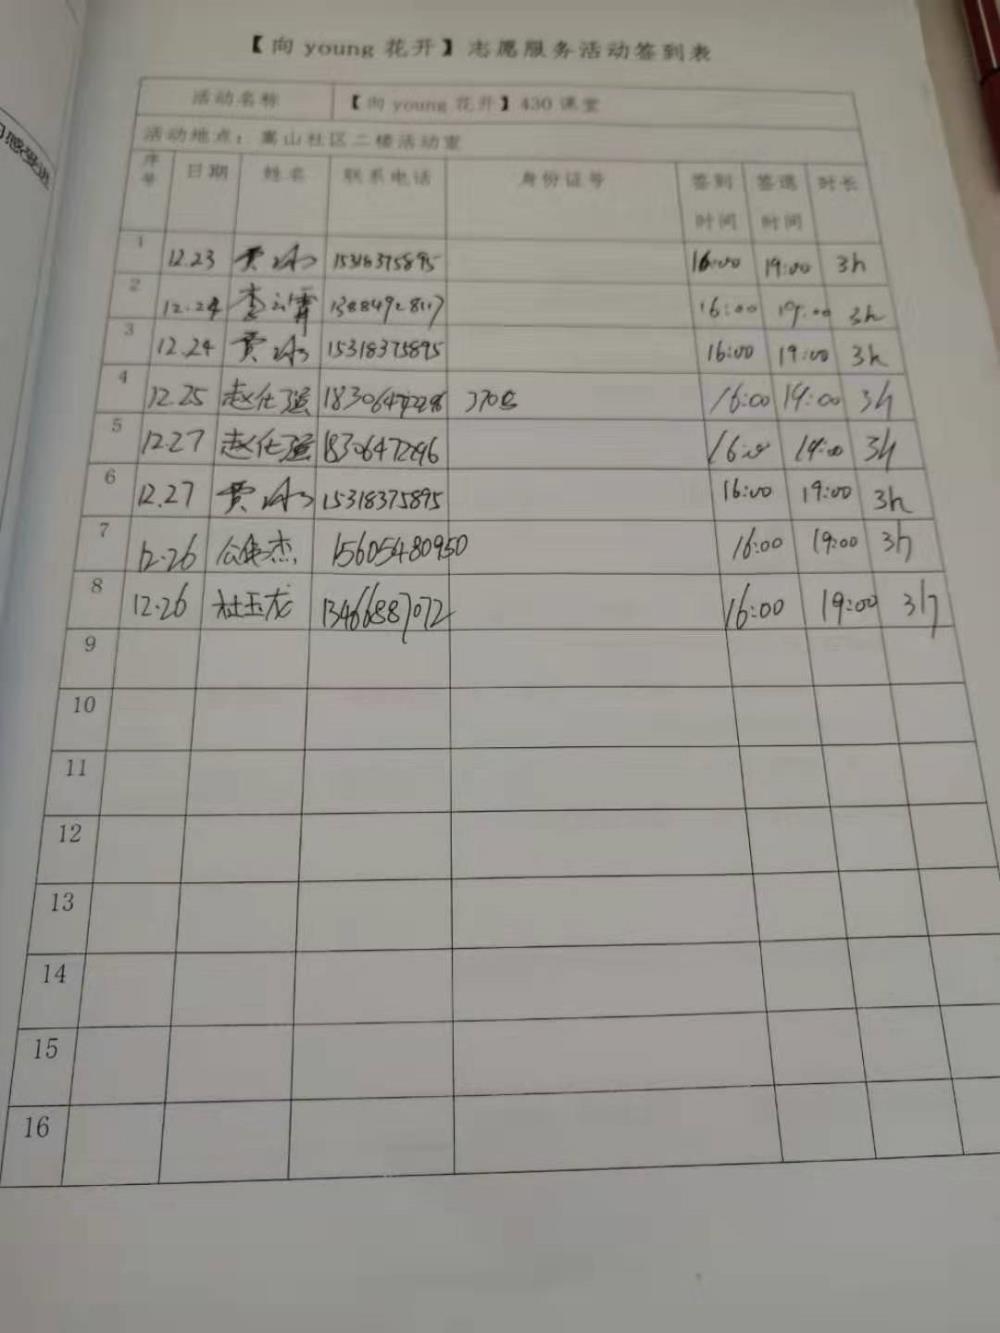 【向young花开】志愿服务活动签到表
活动名称 【向young花开】430课堂
活动地点：嵩山社区二楼活动室
序号 日期 姓名 联系电话 身份证号 签到时间 签退时间 时长
1 12.23 贾 15318375895 16:00 19:00 3h
2 12.24 李 霄 16:00 19:00 3h
3 12.24 贾 15318375895 16:00 19:00 3h
4 12.25 赵仕强 16:00 19:00 3h
5 12.27 赵仕强 18306472296 16:00 19:00 3h
6 12.27 贾 15318375895 16:00 19:00 3h
7 12.26 杰 15605480950 16:00 19:00 3h
8 12.26 杜玉龙 13466887072 16:00 19:00 3h
9
10
11
12
13
14
15
16